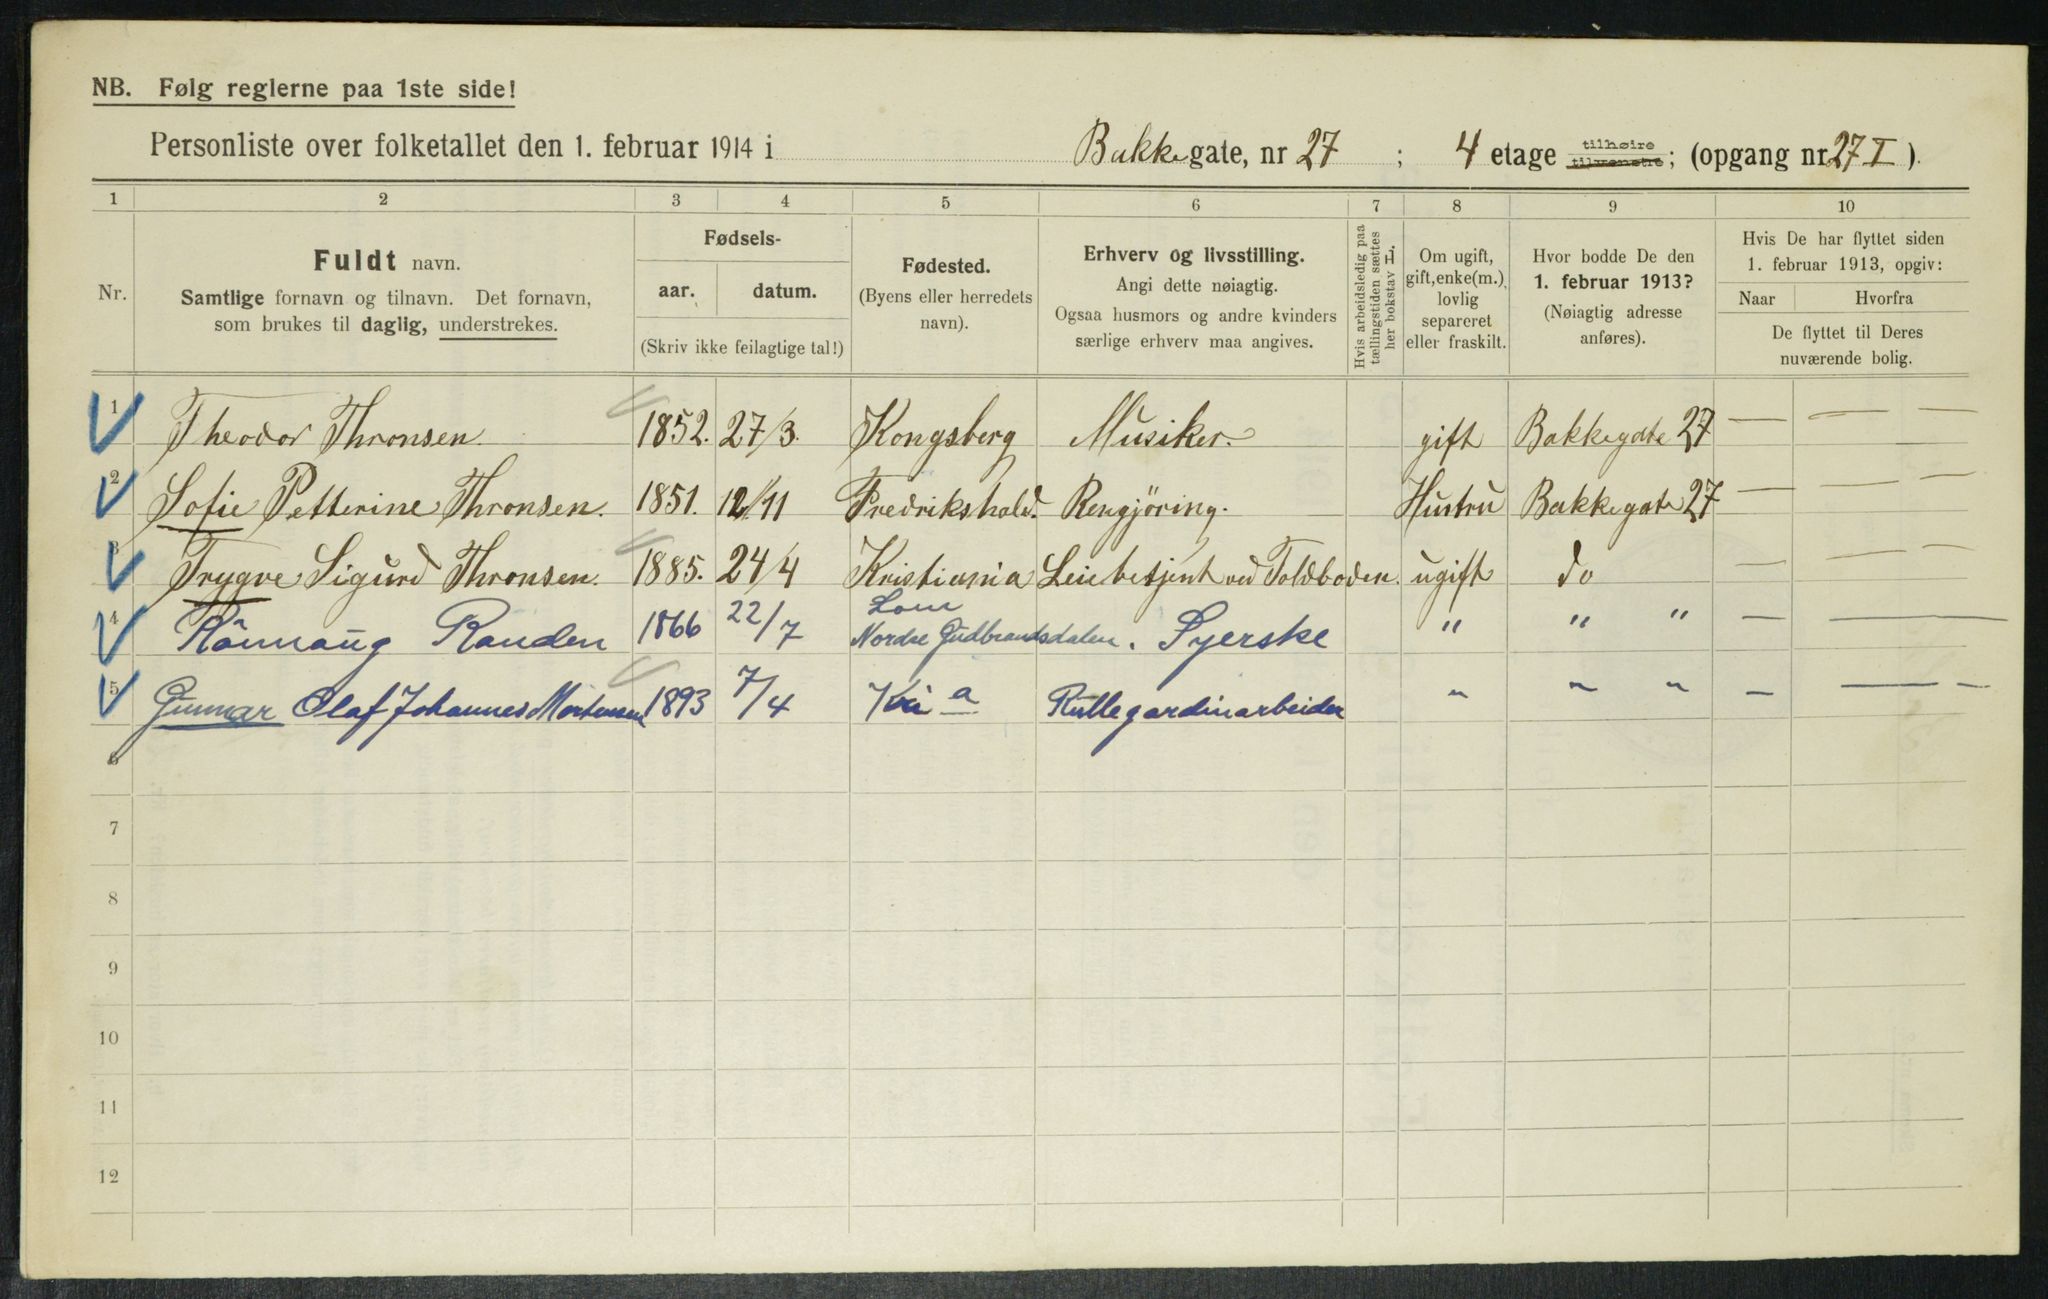 NB. Følg reglerne paa 1ste side!
Personliste over folketallet den 1. februar 1914 i Bakke gate, nr 27 ; 4 etage tilhøire tilvenstre ; (opgang nr 27 I ).
1 2 3 4 5 6 7 8 9 10
Nr.
Fuldt navn.
Samtlige fornavn og tilnavn. Det fornavn,
som brukes til daglig, understrekes.
Fødsels-
aar. datum.
(Skriv ikke feilagtige tal!)
Fødested.
(Byens eller herredets
navn).
Erhverv og livsstilling.
Angi dette nøiagtig.
Ogsaa husmors og andre kvinders
særlige erhverv maa angives.
Hvis arbeidsledig paa
tællingstiden sættes
her bokstav L.
Om ugift,
gift, enke(m.),
lovlig
separeret
eller fraskilt.
Hvor bodde De den
1. februar 1913?
(Nøiagtig adresse
anføres).
Hvis De har flyttet siden
1. februar 1913, opgiv:
Naar Hvorfra
De flyttet til Deres
nuværende bolig.
1 Theodor Thronsen. 1852. 27/3. Kongsberg Musiker. gift Bakkegate 27 — — —
2 Sofie Petterine Thronsen. 1851. 12/11 Fredrikshald. Rengjöring. Hustru Bakkegate 27 — — —
3 Trygve Sigurd Thronsen. 1885. 24/4 Kristiania Leiebetjent ved Toldboden. ugift do — — —
4 Rönnaug Randen 1866 22/7 Lom Nordre Gudbrandsdalen. Syerske " " " — —
5 Gunnar Olaf Johannes Mortensen 1893 7/4 Kria Rullegardinarbeider " " " — — —
6
7
8
9
10
11
12